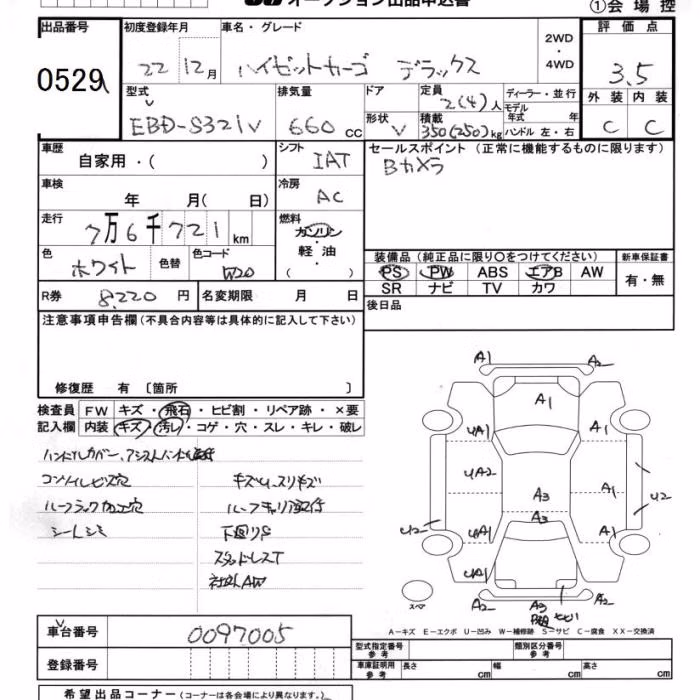 オークション出品申込書
①会場控
出品番号
0529
初度登録年月
22 12月
車名・グレード
ハイゼットカーゴ デラックス
2WD
・
4WD
評価点
3.5
外装 内装
C C
型式
EBD-S321V
排気量
660 cc
ドア
形状 V
定員
2(4)人
積載
350(250)kg
ディーラー・並行
モデル年式 年
ハンドル 左・右
車歴
自家用・( )
シフト
IAT
セールスポイント (正常に機能するものに限ります)
Bカメラ
車検
年 月( 日)
冷房
AC
走行
7万6千721km
燃料
ガソリン
軽・油
( )
色
ホワイト
色替
色コード
W20
装備品 (純正品に限り〇をつけてください)
PS PW ABS エアB AW
SR ナビ TV カワ
新車保証書
有・無
R券 8,220円
名変期限 月 日
後日品
注意事項申告欄 (不具合内容等は具体的に記入して下さい)
修復歴 有 〔箇所 〕
検査員記入欄
FW キズ・飛石・ヒビ割・リペア跡・×要
内装 キズ・汚レ・コゲ・穴・スレ・キレ・破レ
ハンドルカバー、アシストハンドル
コンソルビス穴 キズU、スリキズ
ルーフラック加工穴 ルーフキャリア
シートシミ 下廻りS
スタッドレスT
社外AW
A1 A2
A1
UA1 A1
UA2 A1
A3
A3
U2 U2
UA1 A1
UA1
A2 A3 A2
ヒビ1
スペア
A-キズ E-エクボ U-凹み W-補修跡 S-サビ C-腐食 XX-交換済
車台番号
0097005
登録番号
型式指定番号 参考
類別区分番号 参考
車庫証明用 参考
長さ cm 幅 cm 高さ cm
希望出品コーナー (コーナーは各会場により異なります。)